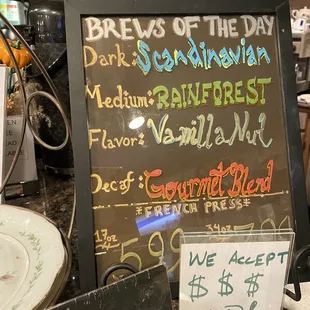 BREWS OF THE DAY
Dark: Scandinavian
Medium: RAINFOREST
Flavor: Vanilla Nut
Decaf: Gourmet Blend
*FRENCH PRESS*
17oz 34oz
599
WE ACCEPT
$ $ $